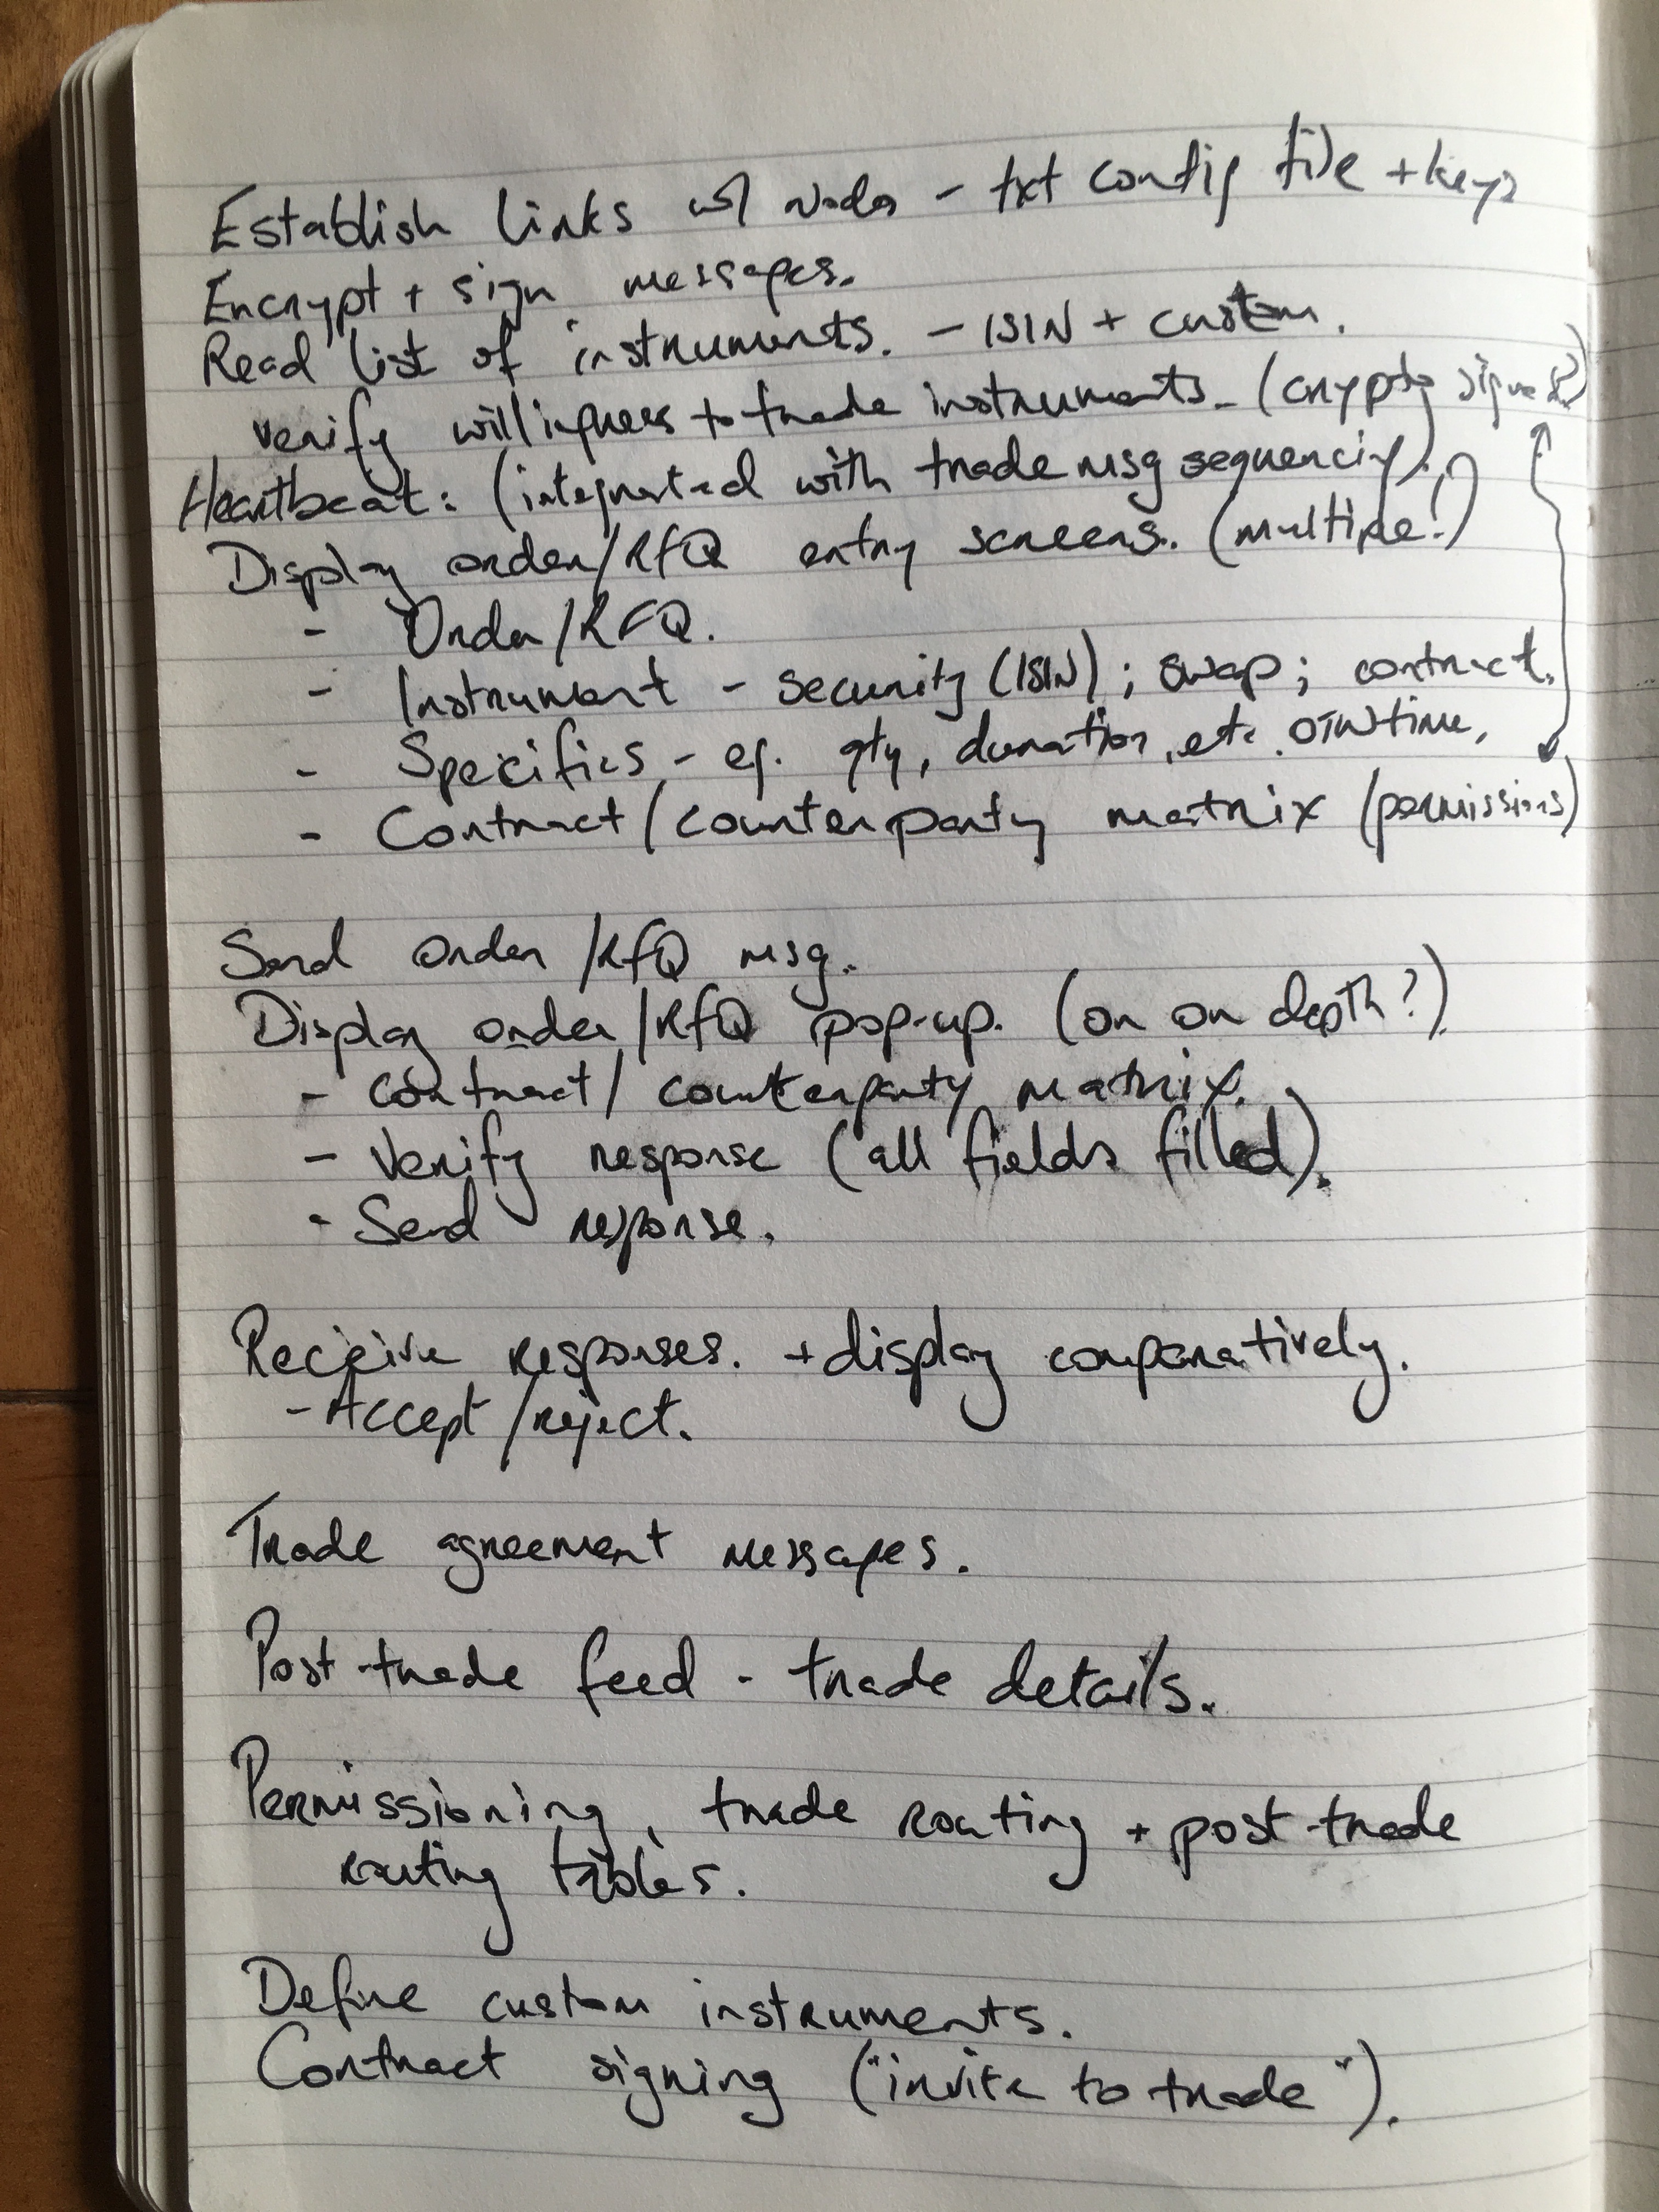 Establish links w/ nodes - txt config file + keys
Encrypt + sign messages.
Read list of instruments. - ISIN + custom.
verify willingness to trade instruments. (crypto signed?)
Heartbeat: (integrated with trade msg sequencing).
Display order/RFQ entry screens. (multiple?)
- Order/RFQ.
- Instrument - security (ISIN); swap; contract.
- Specifics - eg. qty, duration, etc. OTW time,
- Contract/counterparty matrix (permissions)
Send order/RFQ msg.
Display order/RFQ pop-up. (or on depth?)
- contract/counterparty matrix.
- Verify response (all fields filled).
- Send response.
Receive responses. + display comparatively.
- Accept/reject.
Trade agreement messages.
Post-trade feed - trade details.
Permissioning, trade routing + post-trade
routing tables.
Define custom instruments.
Contract signing ("invite to trade").